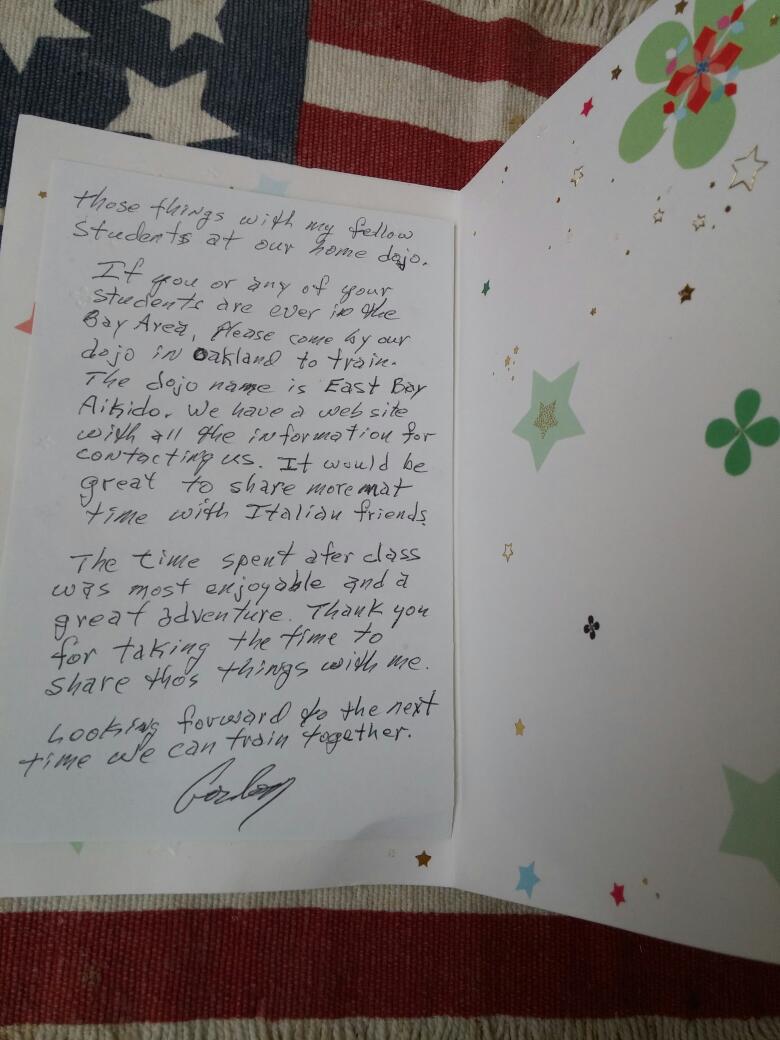 those things with my fellow
students at our home dojo.
If you or any of your
students are ever in the
Bay Area, Please come by our
dojo in Oakland to train.
The dojo name is East Bay
Aikido. We have a web site
with all the information for
contacting us. It would be
great to share more mat
time with Italian friends
The time spent afer class
was most enjoyable and a
great adventure. Thank you
for taking the time to
share thos things with me.
Looking forward to the next
time we can train together.